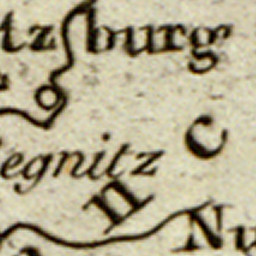 tzburg
egnitz
n
c
Nu